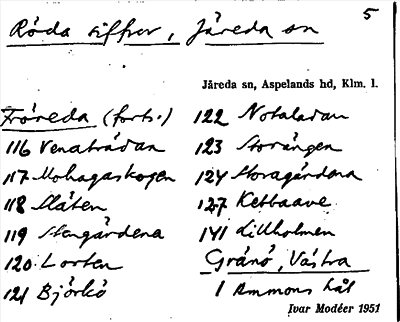 5
Röda siffror, Järeda sn
Järeda sn, Aspelands hd, Klm. l.
Fröreda (forts.)
116 Venatrådan
117 Mohagaskogen
118 Slåten
119 Stengärdena
120 Lorten
121 Björkö
122 Notaladan
123 Storängen
124 Storagärdena
127 Kettaave
141 Lillholmen
Granö, Västra
1 Ammons hål
Ivar Modéer 1951